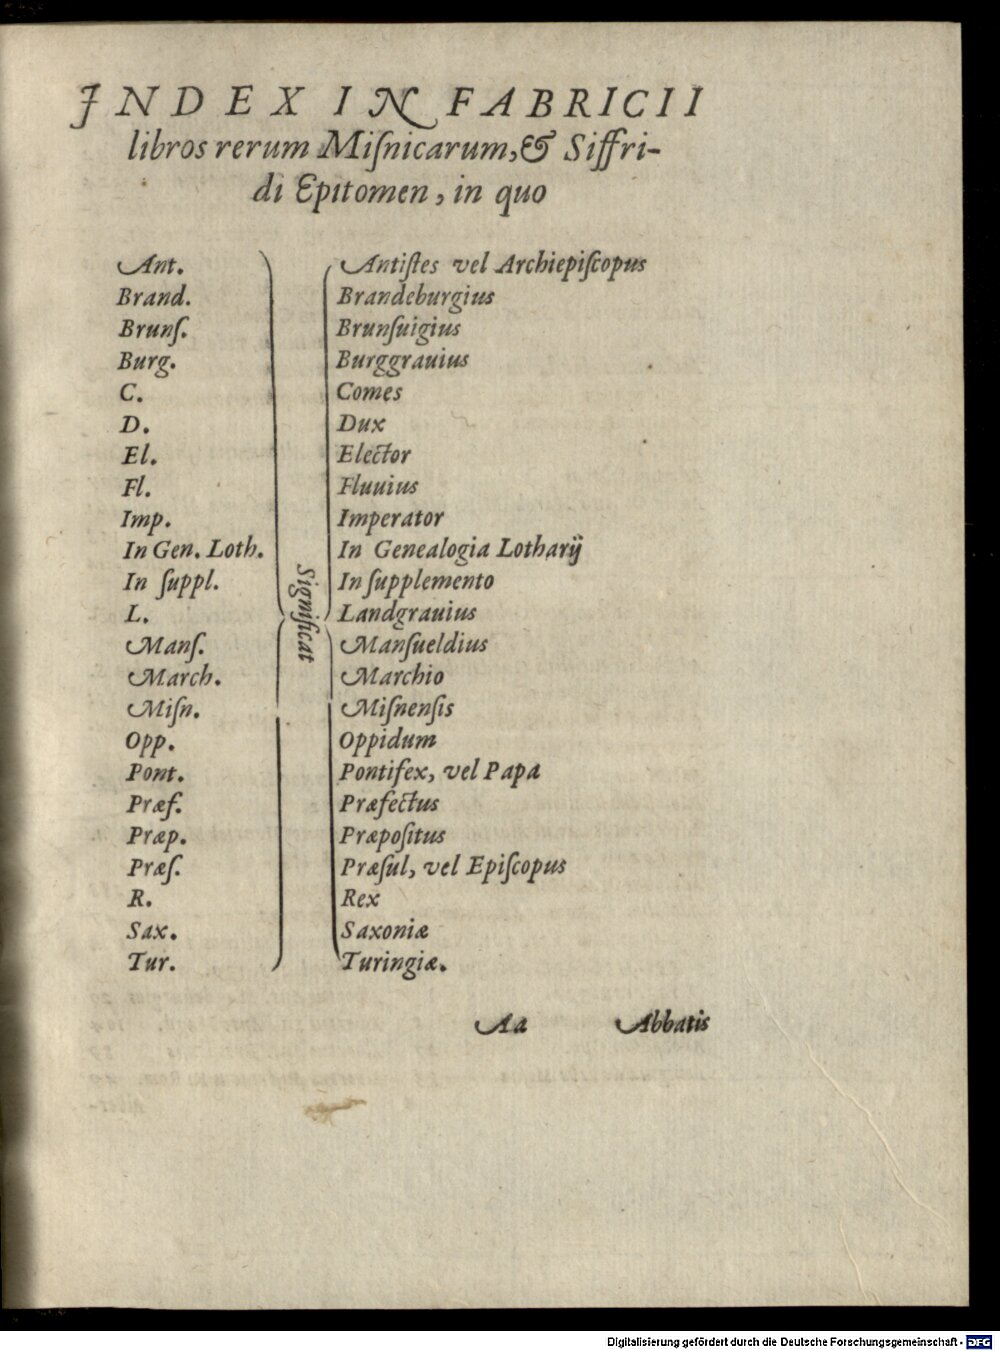 INDEX IN FABRICII
libros rerum Miſnicarum, & Siffri-
di Epitomen, in quo
Ant. Antiſtes vel Archiepiſcopus
Brand. Brandeburgius
Brunſ. Brunſuigius
Burg. Burggrauius
C. Comes
D. Dux
El. Elector
Fl. Fluuius
Imp. Imperator
In Gen. Loth. In Genealogia Lotharij
In ſuppl. In ſupplemento
L. Landgrauius
Significat
Manſ. Manſueldius
March. Marchio
Miſn. Miſnenſis
Opp. Oppidum
Pont. Pontifex, vel Papa
Præf. Præfectus
Præp. Præpoſitus
Præſ. Præſul, vel Epiſcopus
R. Rex
Sax. Saxoniæ
Tur. Turingiæ.
Aa Abbatis
Digitalisierung gefördert durch die Deutsche Forschungsgemeinschaft - DFG